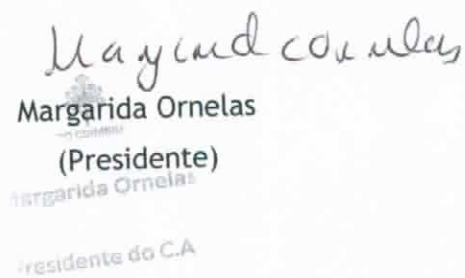 Margarida Ornelas
Margarida Ornelas
(Presidente)
Margarida Ornelas
Presidente do C.A